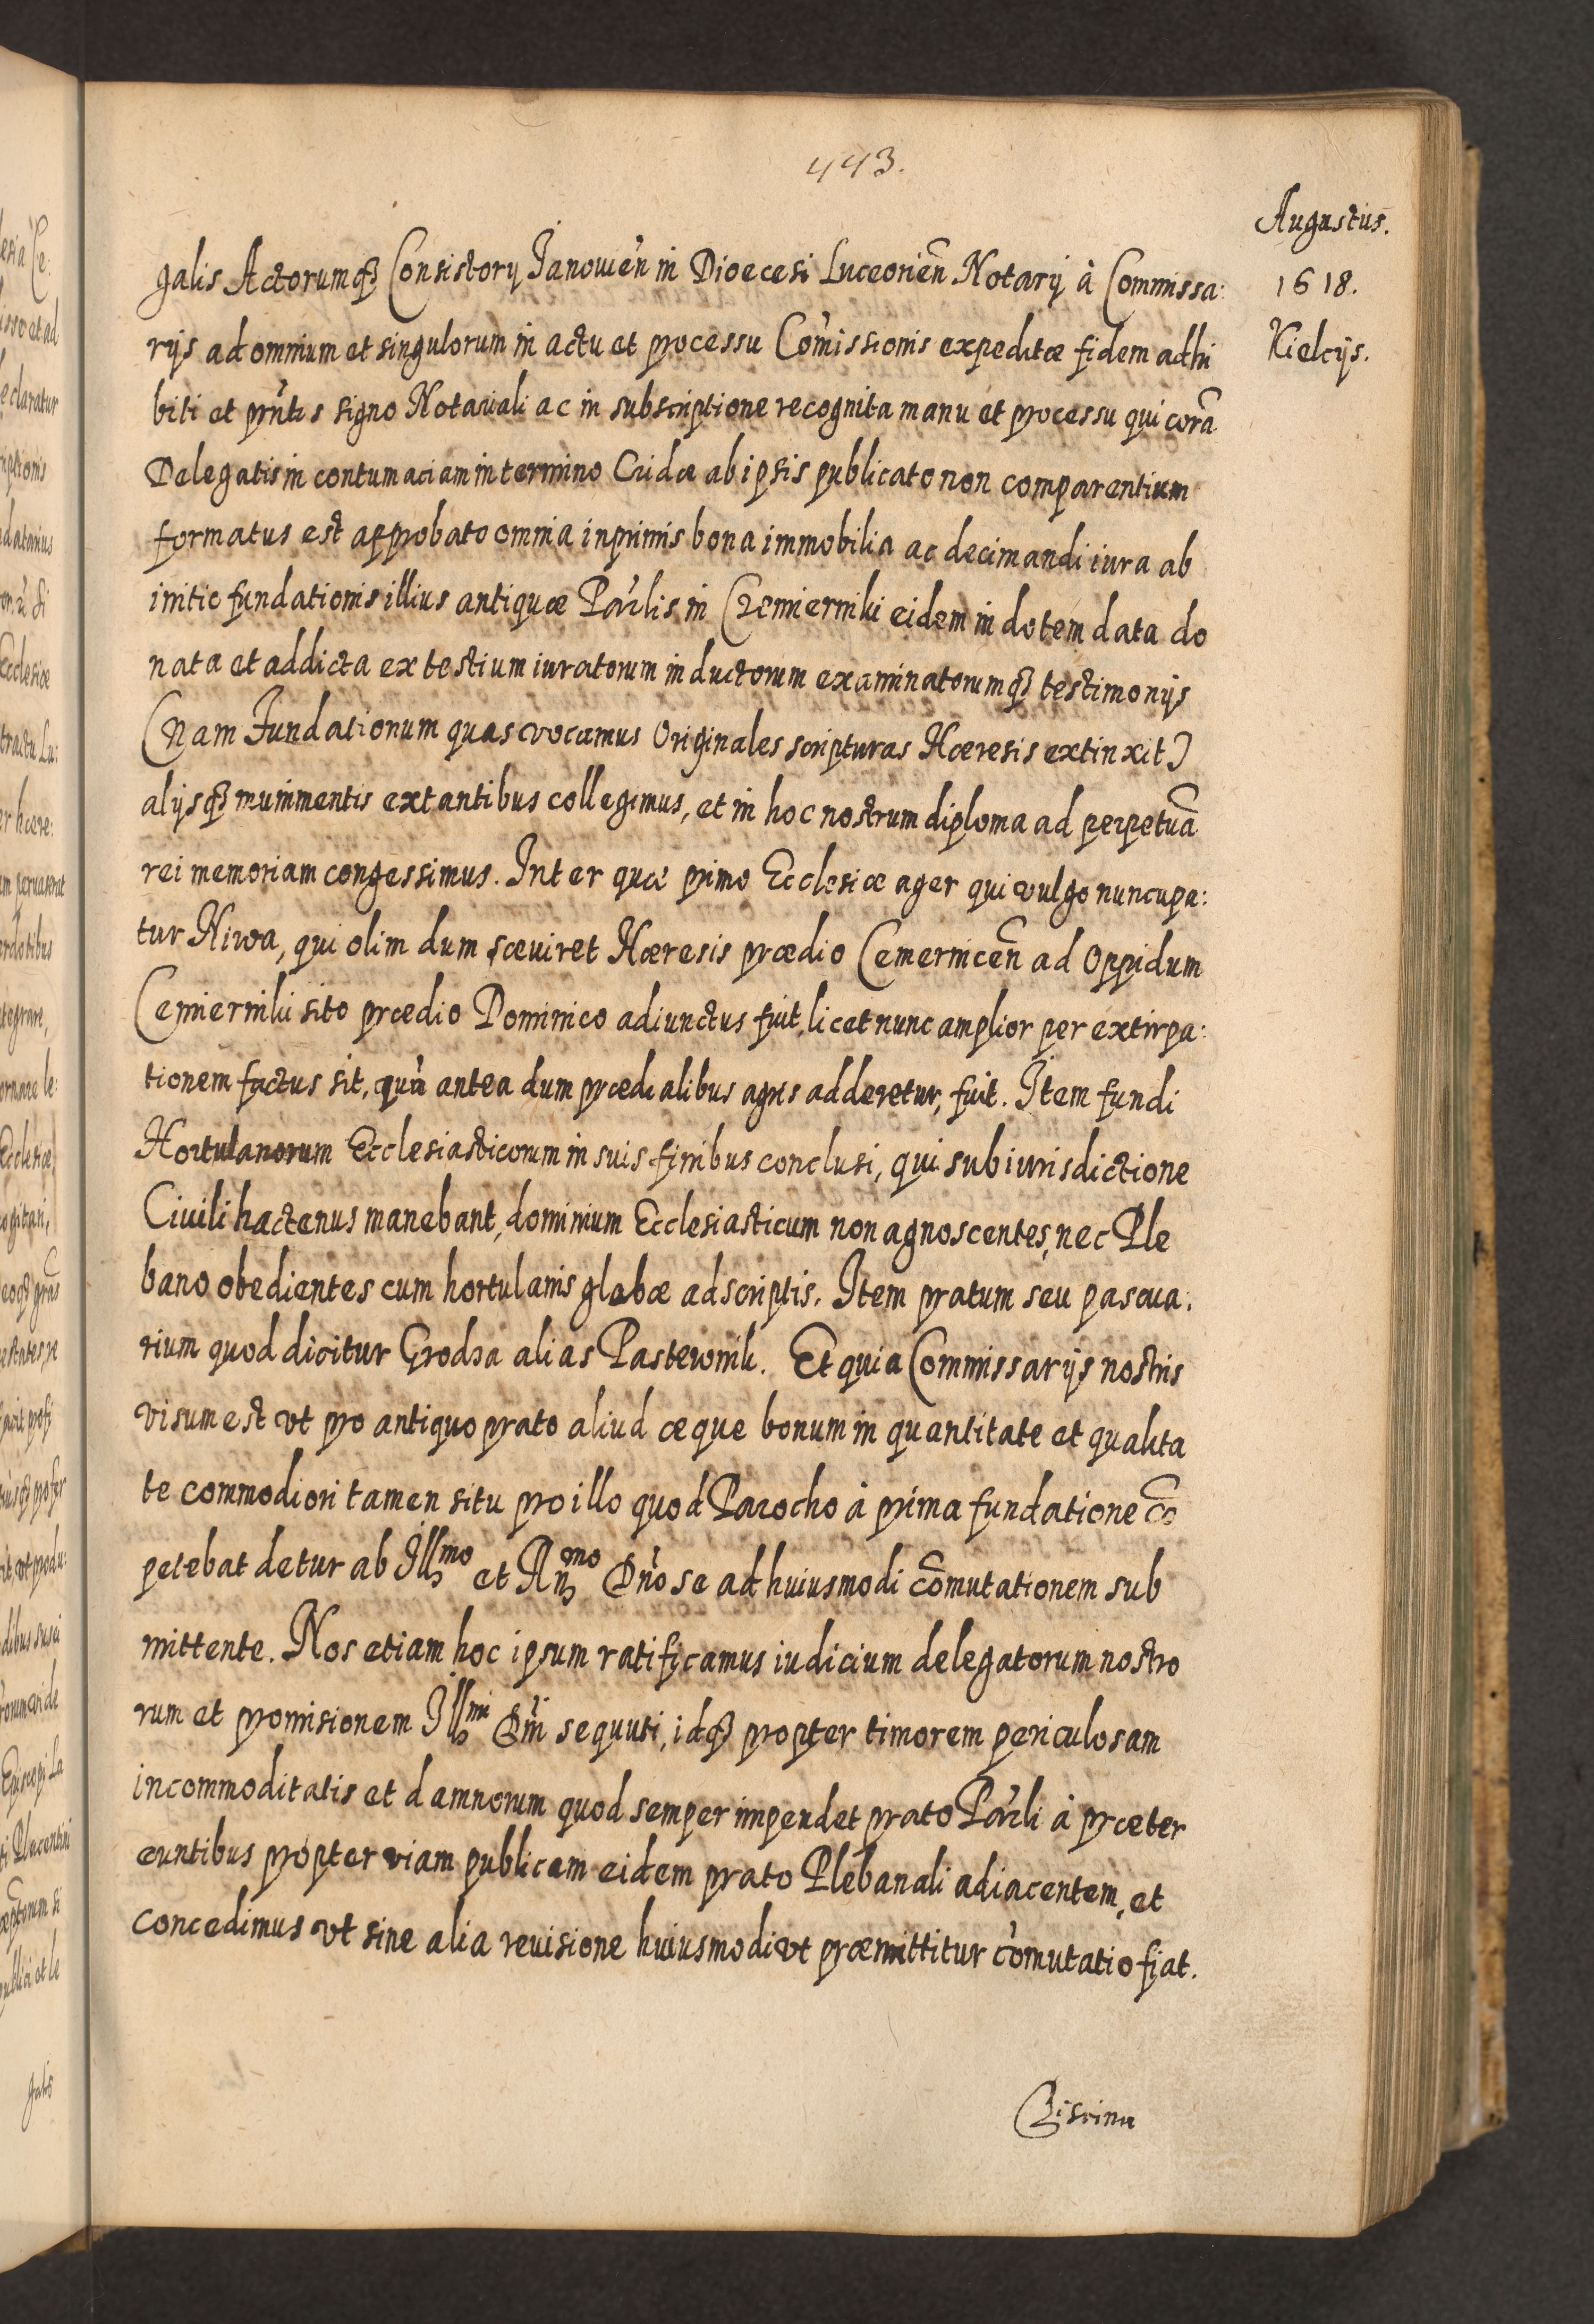 443.
Augustus.
1618.
Kielcijs.
galis Actorumq₃ Consistorij Janouień in Dioecesi Luceorień Notarij à Commissa:
rijs ad omnium et singulorum in actu et processu Com̃issionis expeditæ fidem adhi
biti et pñtis signo Notariali ac in subscriptione recognita manu et processu qui corã
Delegatis in contumaciam in termino Cridæ ab ipsis publicato non comparentium
formatus est approbato omnia inprimis bona immobilia ac decimandi iura ab
initio fundationis illius antiquæ Parlis in Czemierniki eidem in dotem data do
nata et addicta ex testium iuratorum inductorum examinatorumq₃ testimonijs
(Nam Fundationum quas vocamus Originales scripturas Hæresis extinxit)
alijsq₃ munimentis extantibus collegimus, et in hoc nostrum diploma ad perpetuã
rei memoriam congessimus. Inter quæ primo Ecclesiæ ager qui vulgo nuncupa:
tur Niwa, qui olim dum sæuiret Hæresis prædio Cemernicen̄ ad Oppidum
Cemierniki sito prædio Dominico adiunctus fuit, licet nunc amplior per extirpa:
tionem factus sit, qum̃ antea dum prædialibus agris adderetur, fuit. Item fundi
Hortulanorum Ecclesiasticorum in suis finibus conclusi, qui sub iurisdictione
Ciuili hactenus manebant, dominium Ecclesiasticum non agnoscentes, nec Ple
bano obedientes cum hortulanis glebæ adscriptis. Item pratum seu pascua:
rium quod dicitur Grodza alias Pastewnik. Et quia Commissarijs nostris
visum est vt pro antiquo prato aliud æque bonum in quantitate et qualita
te commodiori tamen situ pro illo quod Parocho à prima fundatione cō
petebat detur ab Illmo et Rñmo Dño se ad huiusmodi cōmutationem sub
mittente. Nos etiam hoc ipsum ratificamus iudicium delegatorum nostro
rum et promisionem Illmi Dñi sequuti, idq₃ propter timorem periculosam
incommoditatis et damnorum quod semper impendet prato Parli à præter
euntibus propter viam publicam eidem prato Plebanali adiacentem, et
concedimus vt sine alia reuisione huiusmodi vt præmittitur com̃utatio fiat.
Piscina